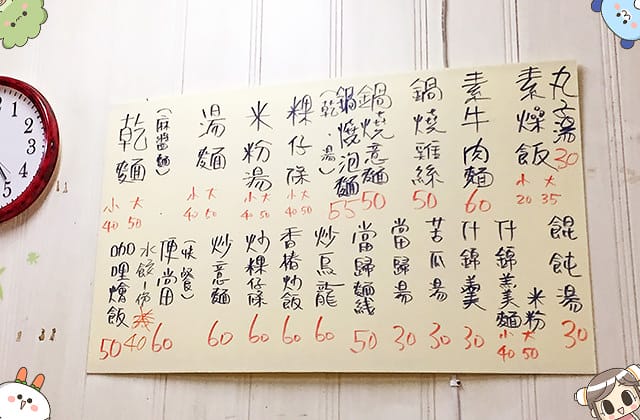 丸湯 30
素燥飯 小20 大35
素牛肉麵 60
鍋燒雞絲 50
鍋燒意麵 50
鍋燒泡麵 (乾、湯) 55
粿仔條 小40 大50
米粉湯 小40 大50
湯麵 小40 大50
(麻醬麵)
乾麵 小40 大50
餛飩湯 30
什錦羹麵 米粉 小40 大50
什錦羹 30
苦瓜湯 30
當歸湯 30
當歸麵線 50
炒烏龍 60
香椿炒飯 60
炒粿仔條 60
炒意麵 60
(快餐)
便當 60
水餃一份 40
咖哩燴飯 50
1
2
3
4
5